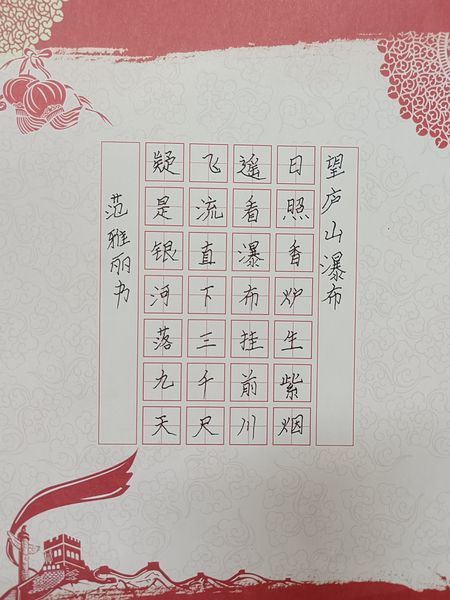 望庐山瀑布
日照香炉生紫烟
遥看瀑布挂前川
飞流直下三千尺
疑是银河落九天
范雅丽书